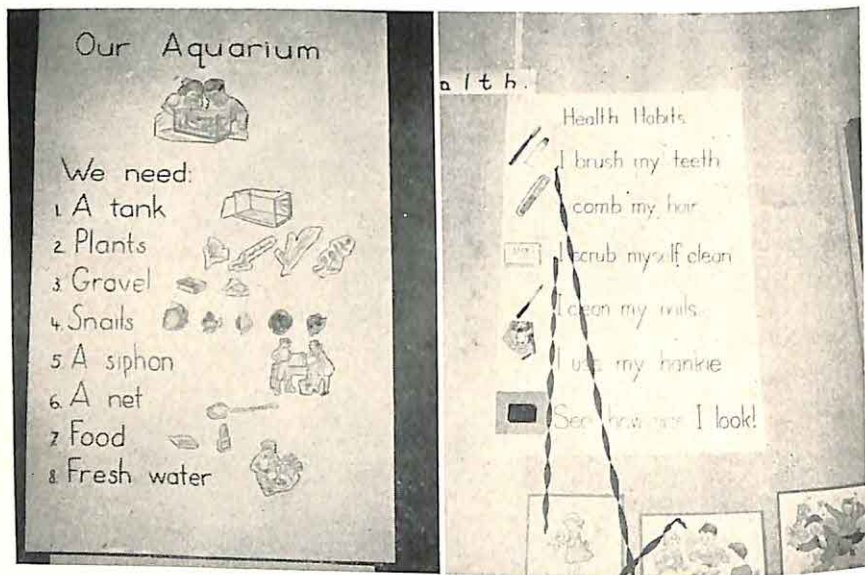 Our Aquarium
We need:
1. A tank
2. Plants
3. Gravel
4. Snails
5. A siphon
6. A net
7. Food
8. Fresh water
alth.
Health Habits
I brush my teeth
I comb my hair
I scrub myself clean
I clean my nails.
I use my hankie
See how I look!